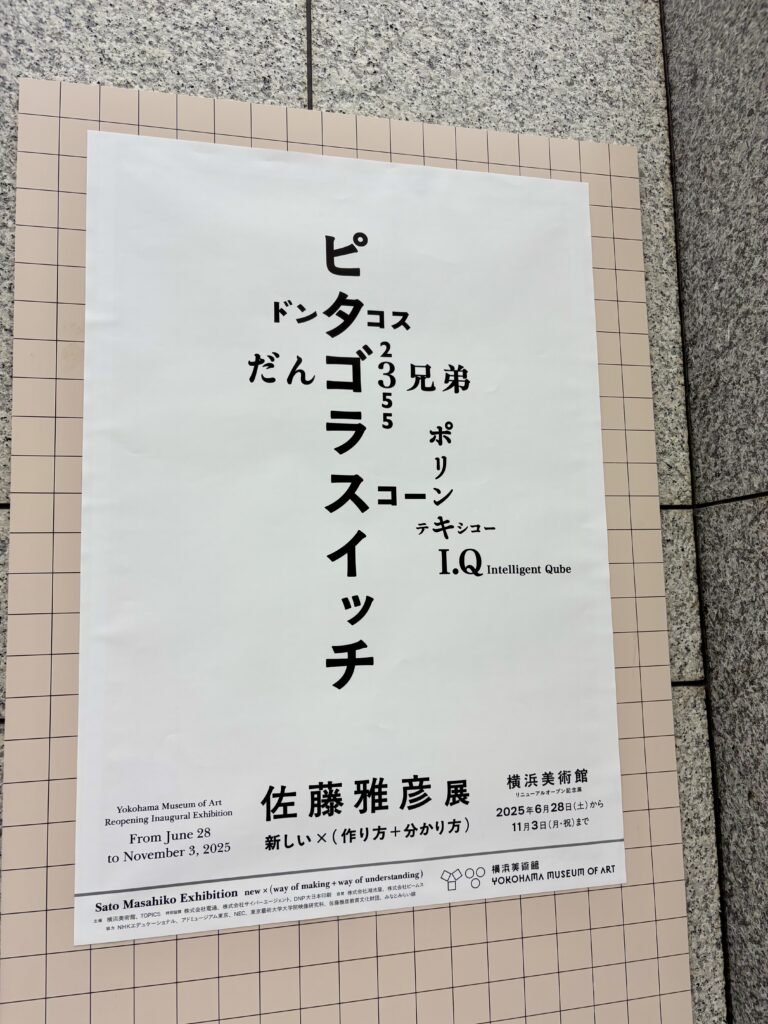 ピタゴラスイッチ
ドンタコス
だんご3兄弟
2355
ポリンキー
スコーン
テキシコー
I.Q Intelligent Qube
佐藤雅彦展
新しい×(作り方+分かり方)
Yokohama Museum of Art
Reopening Inaugural Exhibition
From June 28
to November 3, 2025
横浜美術館
リニューアルオープン記念展
2025年6月28日(土)から
11月3日(月・祝)まで
Sato Masahiko Exhibition new×(way of making+way of understanding)
主催 横浜美術館、TOPICS 特別協賛 株式会社電通、株式会社サイバーエージェント、DNP大日本印刷 協賛 株式会社湖池屋、株式会社ビームス
協力 NHKエデュケーショナル、アドミュージアム東京、NEC、東京藝術大学大学院映像研究科、佐藤雅彦教育文化財団、みなとみらい線
横浜美術館
YOKOHAMA MUSEUM OF ART